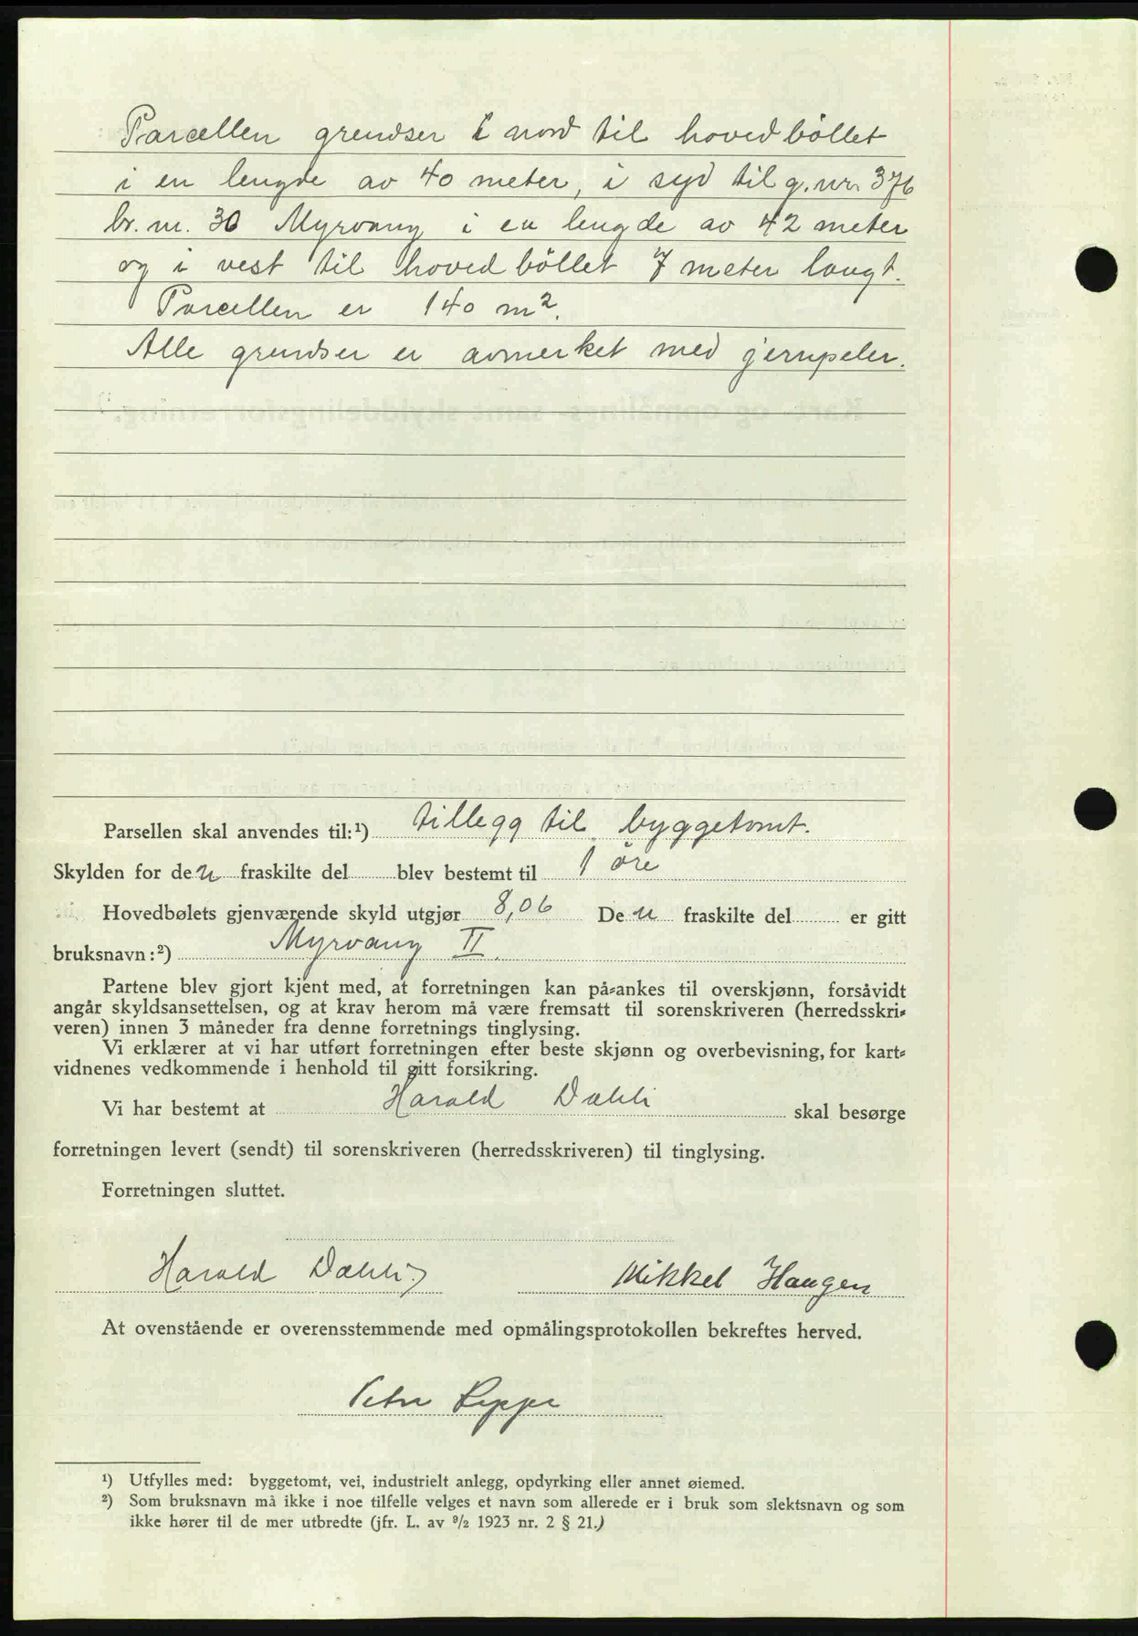 Parcellen grendser i nord til hovedböllet
i en lengde av 40 meter, i syd til g.nr. 376
br. nr. 30 Myrvang i en lengde av 42 meter
og i vest til hovedböllet 7 meter langt.
Parcellen er 140 m².
Alle grendser er avmerket med jernpeler.
Parsellen skal anvendes til:¹) tillegg til byggetomt.
Skylden for den fraskilte del blev bestemt til 1 öre
Hovedbølets gjenværende skyld utgjør 8,06 Den fraskilte del er gitt
bruksnavn:²) Myrvang II.
Partene blev gjort kjent med, at forretningen kan på-ankes til overskjønn, forsåvidt
angår skyldsansettelsen, og at krav herom må være fremsatt til sorenskriveren (herredsskri-
veren) innen 3 måneder fra denne forretnings tinglysing.
Vi erklærer at vi har utført forretningen efter beste skjønn og overbevisning, for kart-
vidnenes vedkommende i henhold til gitt forsikring.
Vi har bestemt at Harald Dahli skal besørge
forretningen levert (sendt) til sorenskriveren (herredsskriveren) til tinglysing.
Forretningen sluttet.
Harald Dahli Mikkel Haugen
At ovenstående er overensstemmende med opmålingsprotokollen bekreftes herved.
¹) Utfylles med: byggetomt, vei, industrielt anlegg, opdyrking eller annet øiemed.
²) Som bruksnavn må ikke i noe tilfelle velges et navn som allerede er i bruk som slektsnavn og som
ikke hører til de mer utbredte (jfr. L. av ⁹/₂ 1923 nr. 2 § 21.)